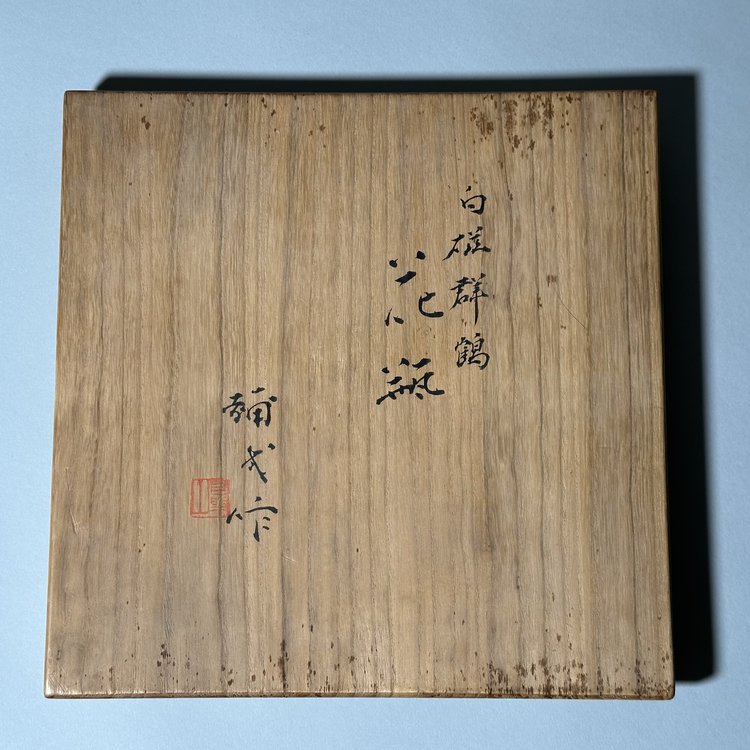 白磁群鶴
花瓶
輔 作